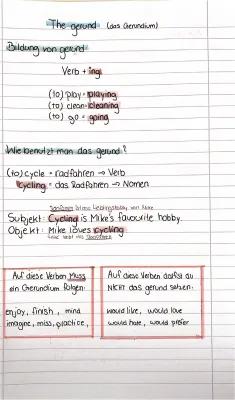 The gerund (das Gerundium)
Bildung von gerund
Verb + ing
(to) play = playing
(to) clean = cleaning
(to) go = going
Wie benutzt man das gerund?
(to) cycle = radfahren → Verb
Cycling = das Radfahren → Nomen
Radfahren ist das Lieblingshobby von Mike
Subjekt: Cycling is Mike's favourite hobby.
Objekt: Mike loves cycling
Mike liebt das Radfahren
Auf diese Verben Muss
ein Gerundium folgen:
enjoy, finish, mind
imagine, miss, practice,
Auf diese Verben darfst du
NICHT das gerund setzen:
would like, would love
would hate, would prefer